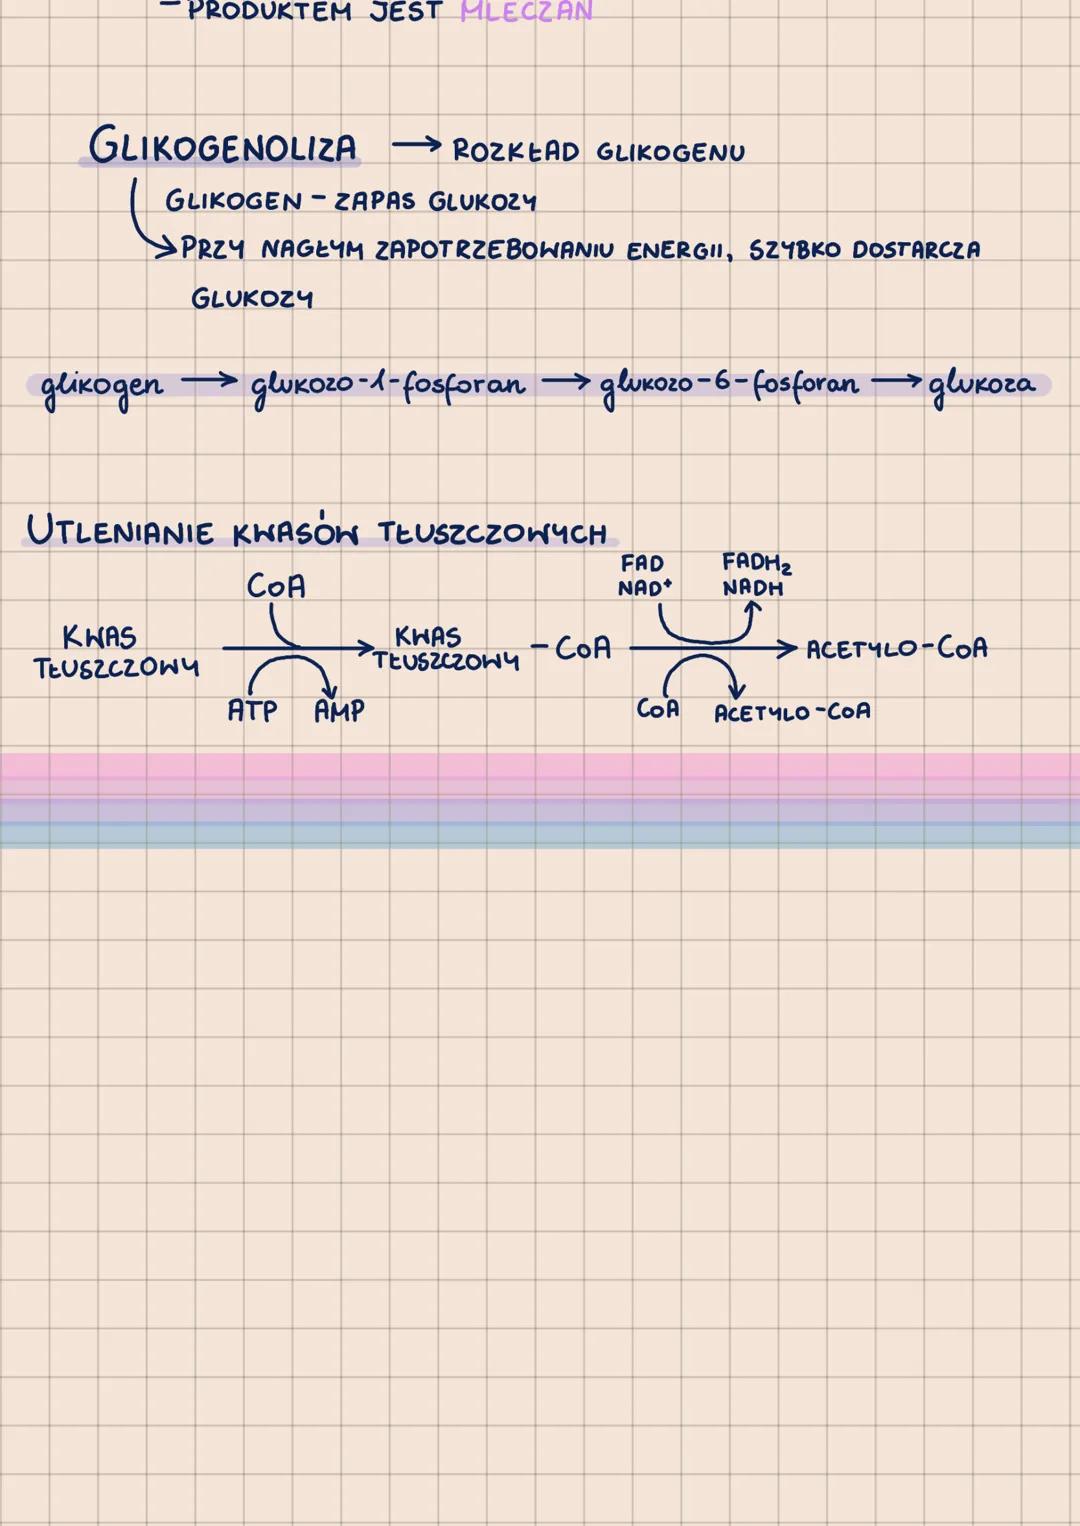 - PRODUKTEM JEST MLECZAN
GLIKOGENOLIZA → ROZKŁAD GLIKOGENU
GLIKOGEN - ZAPAS GLUKOZY
→ PRZY NAGŁYM ZAPOTRZEBOWANIU ENERGII, SZYBKO DOSTARCZA
GLUKOZY
glikogen → glukozo-1-fosforan → glukozo-6-fosforan → glukoza
UTLENIANIE KWASÓW TŁUSZCZOWYCH
FAD FADH₂
CoA NAD⁺ NADH
KWAS → KWAS - CoA → ACETYLO-CoA
TŁUSZCZOWY TŁUSZCZOWY
ATP AMP CoA ACETYLO-CoA